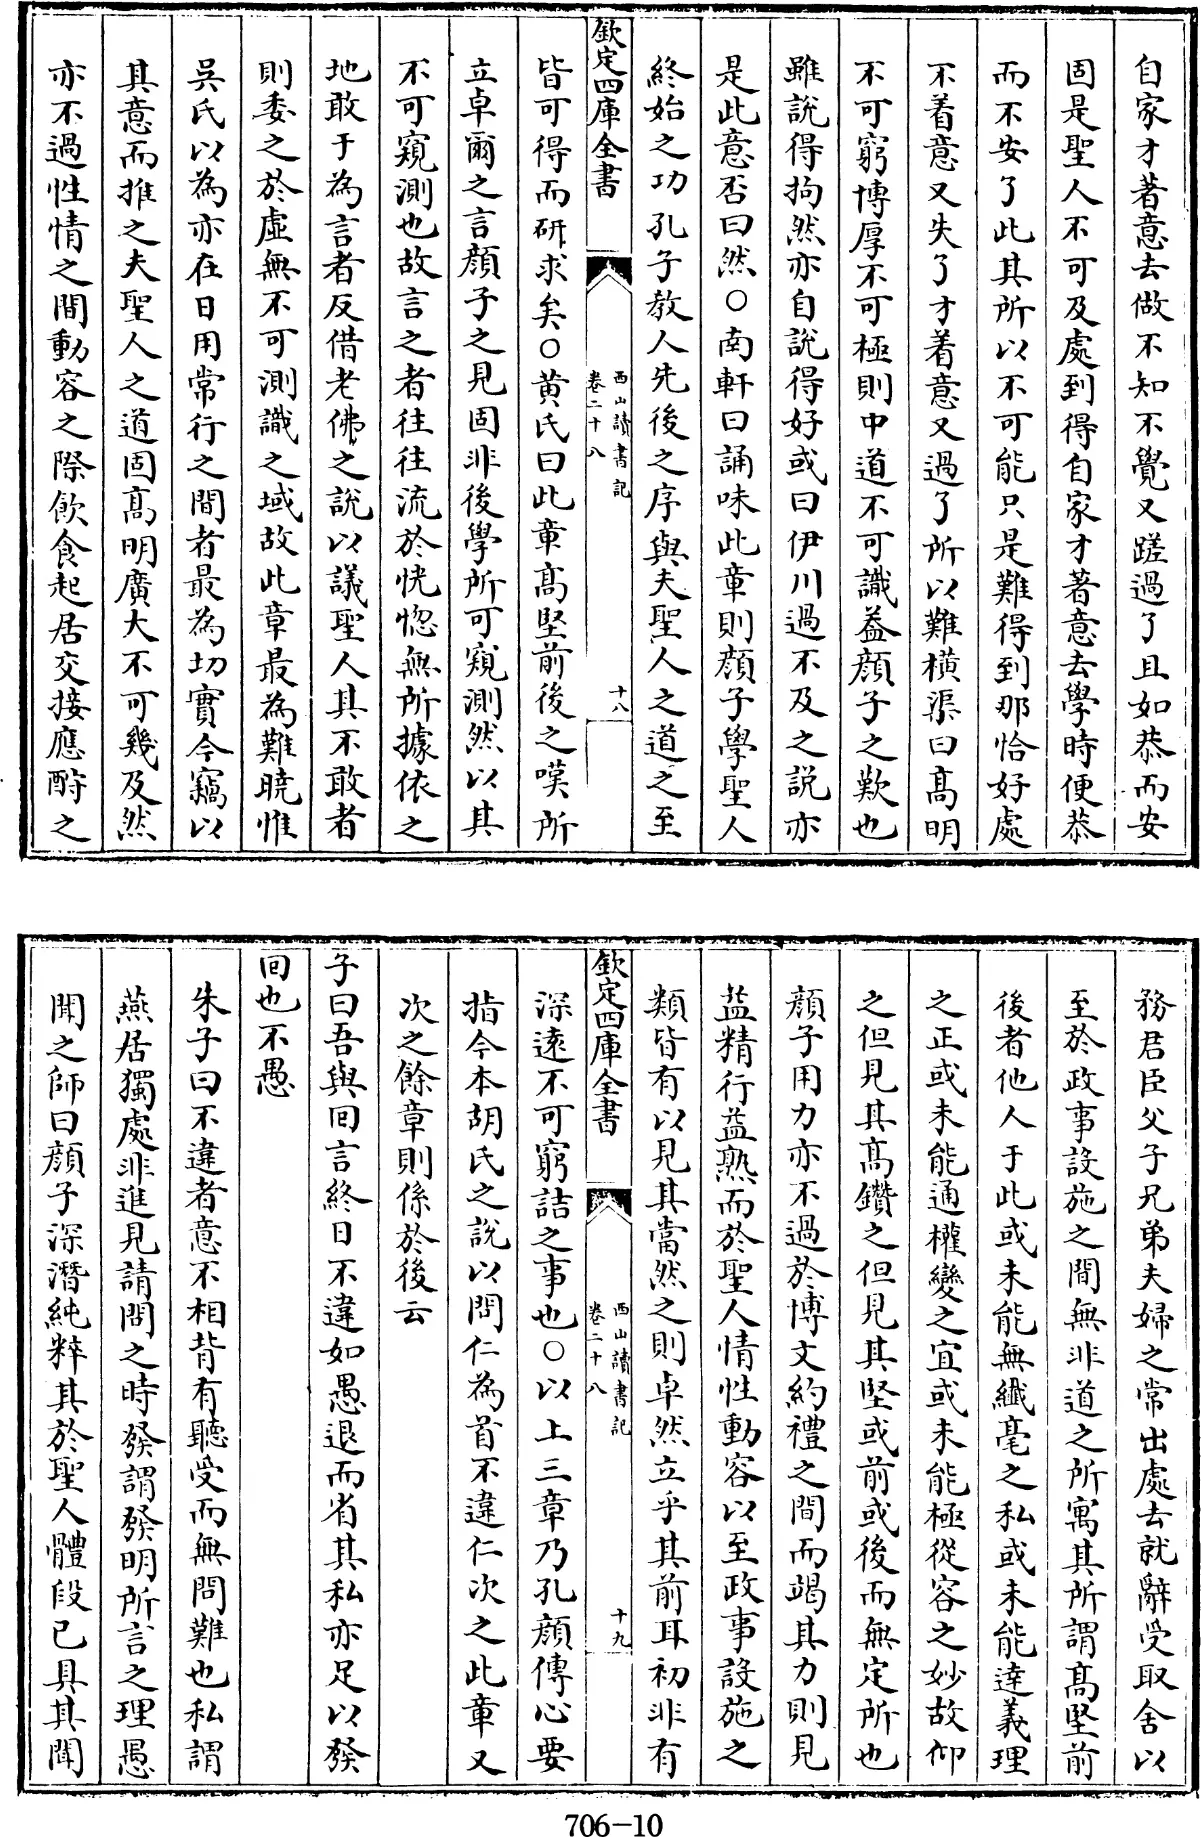 自家才著意去做不知不覺又蹉過了且如恭而安
固是聖人不可及處到得自家才著意去學時便恭
而不安了此其所以不可能只是難得到那恰好處
不着意又失了才着意又過了所以難橫渠曰髙明
不可窮博厚不可極則中道不可識葢顔子之歎也
雖説得拘然亦自説得好或曰伊川過不及之説亦
是此意否曰然○南軒曰誦味此章則顔子學聖人
終始之功孔子教人先後之序與夫聖人之道之至
欽定四庫全書
西山讀書記
卷二十八
十八
皆可得而研求矣○黄氏曰此章髙堅前後之嘆所
立卓爾之言顔子之見固非後學所可窺測然以其
不可窺測也故言之者往往流於恍惚無所據依之
地敢于為言者反借老佛之説以議聖人其不敢者
則委之於虛無不可測識之域故此章最為難曉惟
吳氏以為亦在日用常行之間者最為切實今竊以
其意而推之夫聖人之道固髙明廣大不可幾及然
亦不過性情之間動容之際飲食起居交接應酧之
務君臣父子兄弟夫婦之常出處去就辭受取舍以
至於政事設施之間無非道之所寓其所謂髙堅前
後者他人于此或未能無纖毫之私或未能達義理
之正或未能通權變之宜或未能極從容之妙故仰
之但見其髙鑽之但見其堅或前或後而無定所也
顔子用力亦不過於博文約禮之間而竭其力則見
益精行益熟而於聖人情性動容以至政事設施之
類皆有以見其當然之則卓然立乎其前耳初非有
欽定四庫全書
西山讀書記
卷二十八
十九
深逺不可窮詰之事也○以上三章乃孔顔傳心要
指今本胡氏之説以問仁為首不違仁次之此章又
次之餘章則係於後云
子曰吾與囘言終日不違如愚退而省其私亦足以發
囘也不愚
朱子曰不違者意不相背有聽受而無問難也私謂
燕居獨處非進見請問之時發謂發明所言之理愚
聞之師曰顔子深潛純粹其於聖人體段已具其聞
706-10